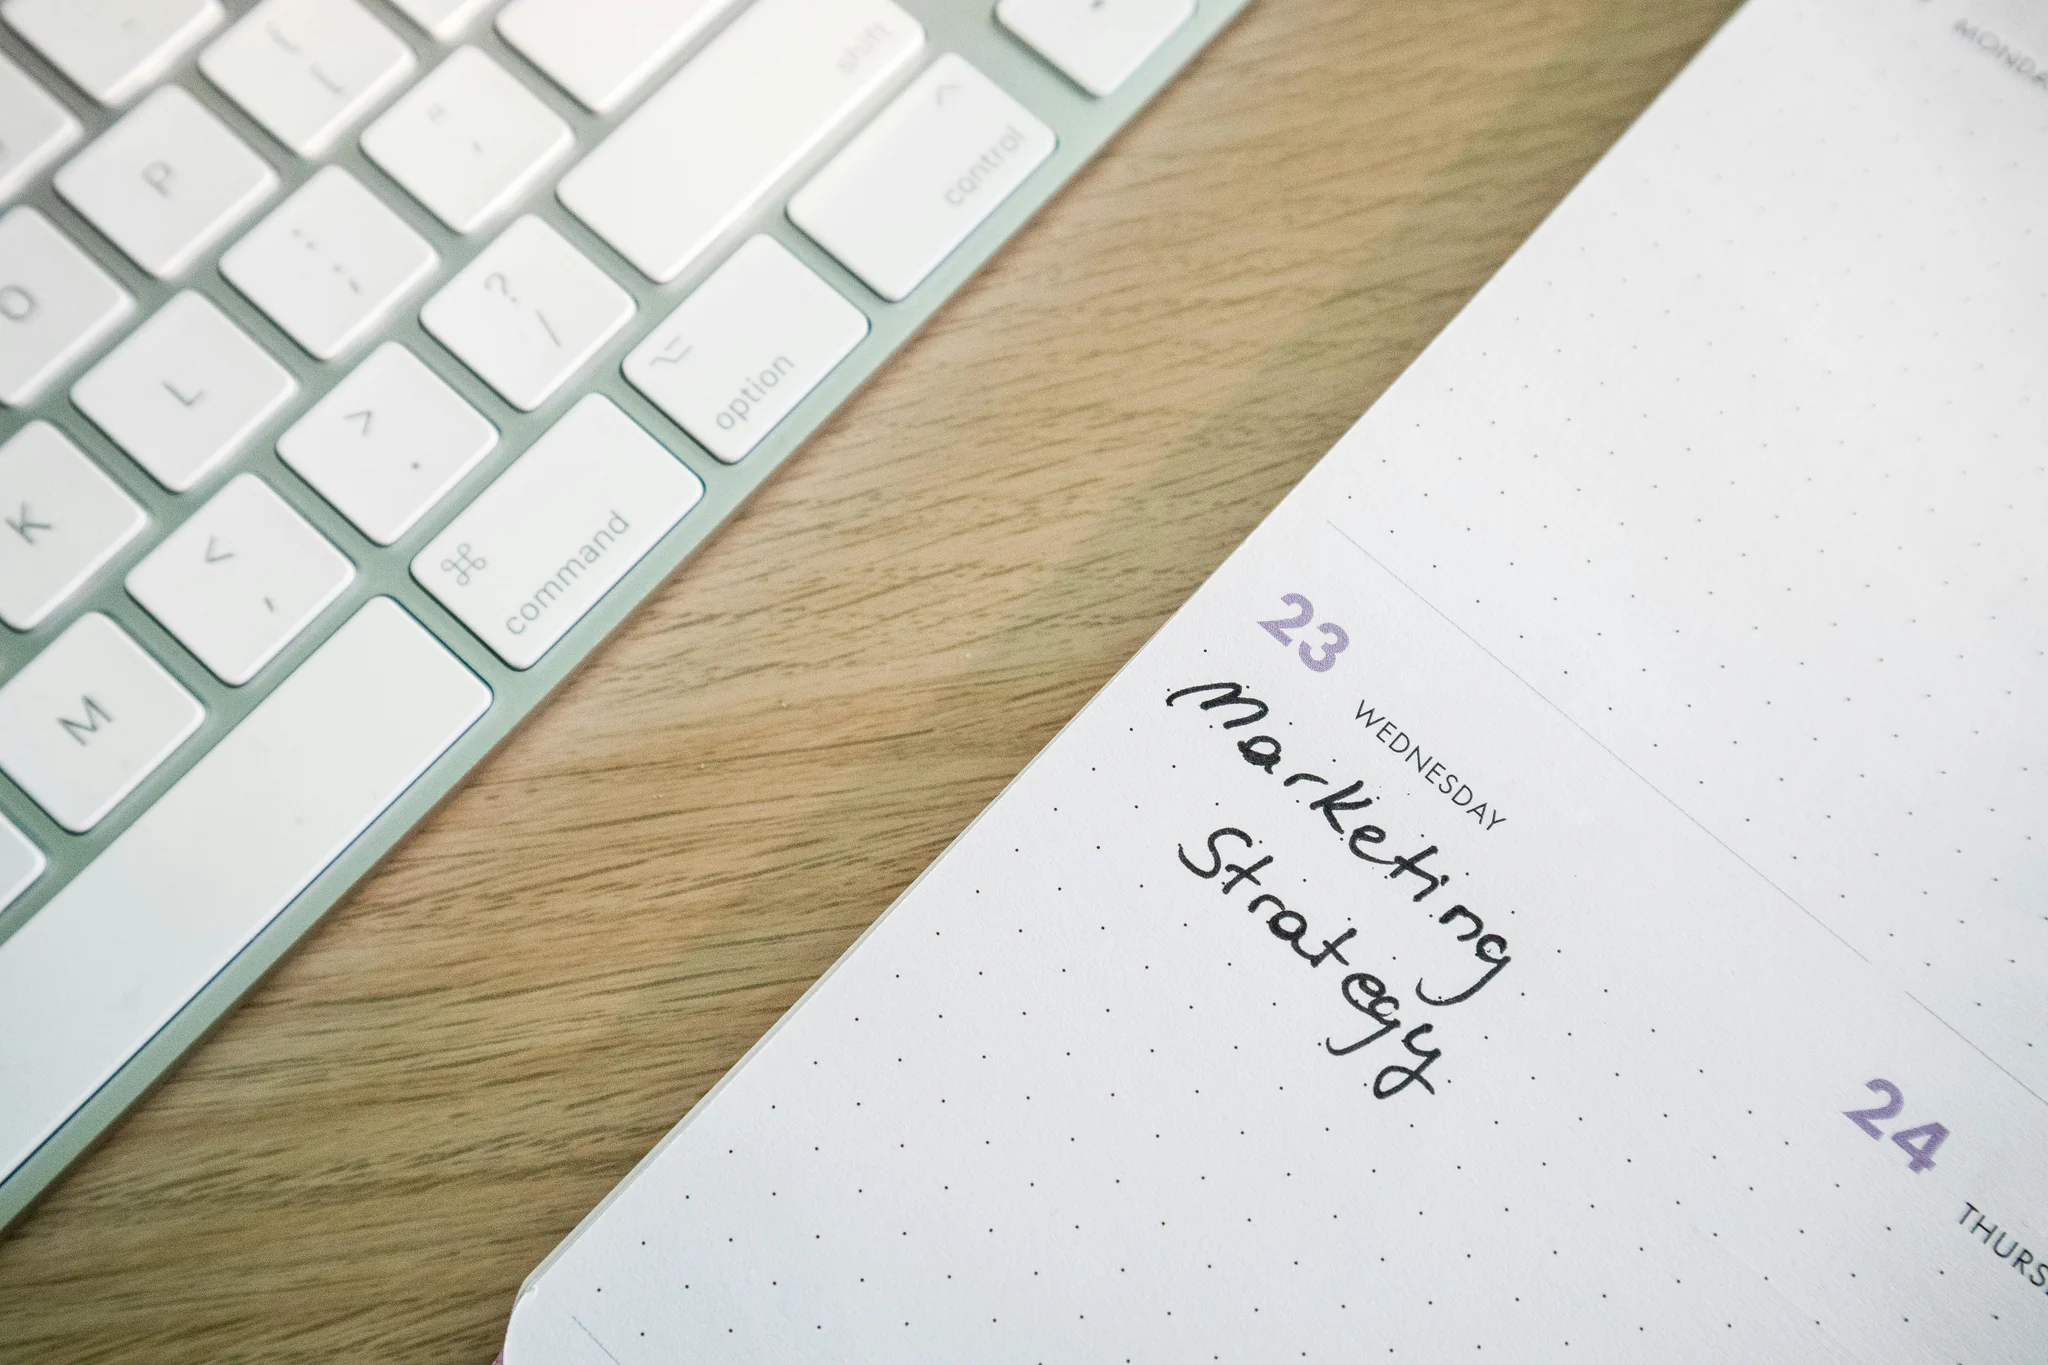 shift
control
option
⌘
command
P
O
L
K
M
{
[
"
'
:
;
?
/
>
.
<
,
23
WEDNESDAY
Marketing
Strategy
24